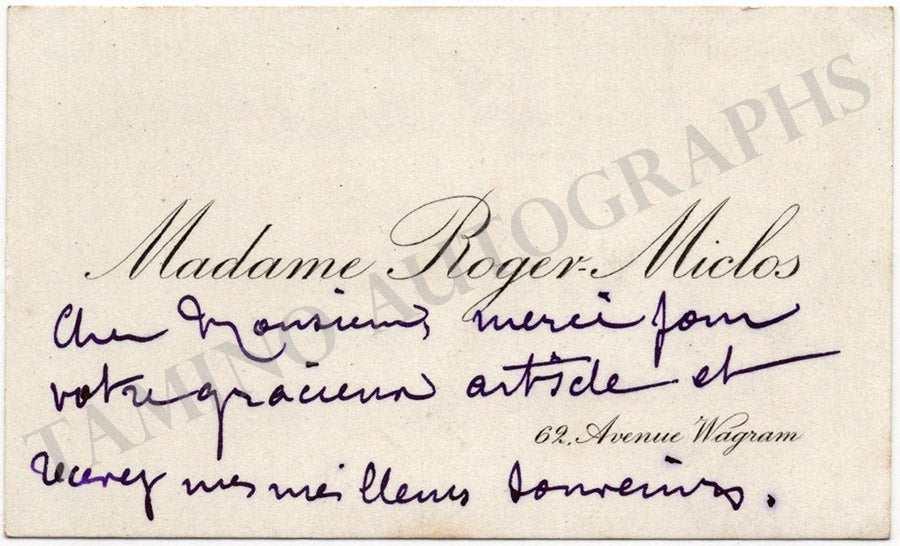 Madame Roger-Miclos
Cher Monsieur, merci pour
votre gracieux article et
62, Avenue Wagram
recevez mes meilleurs souvenirs.
TAMINO AUTOGRAPHS